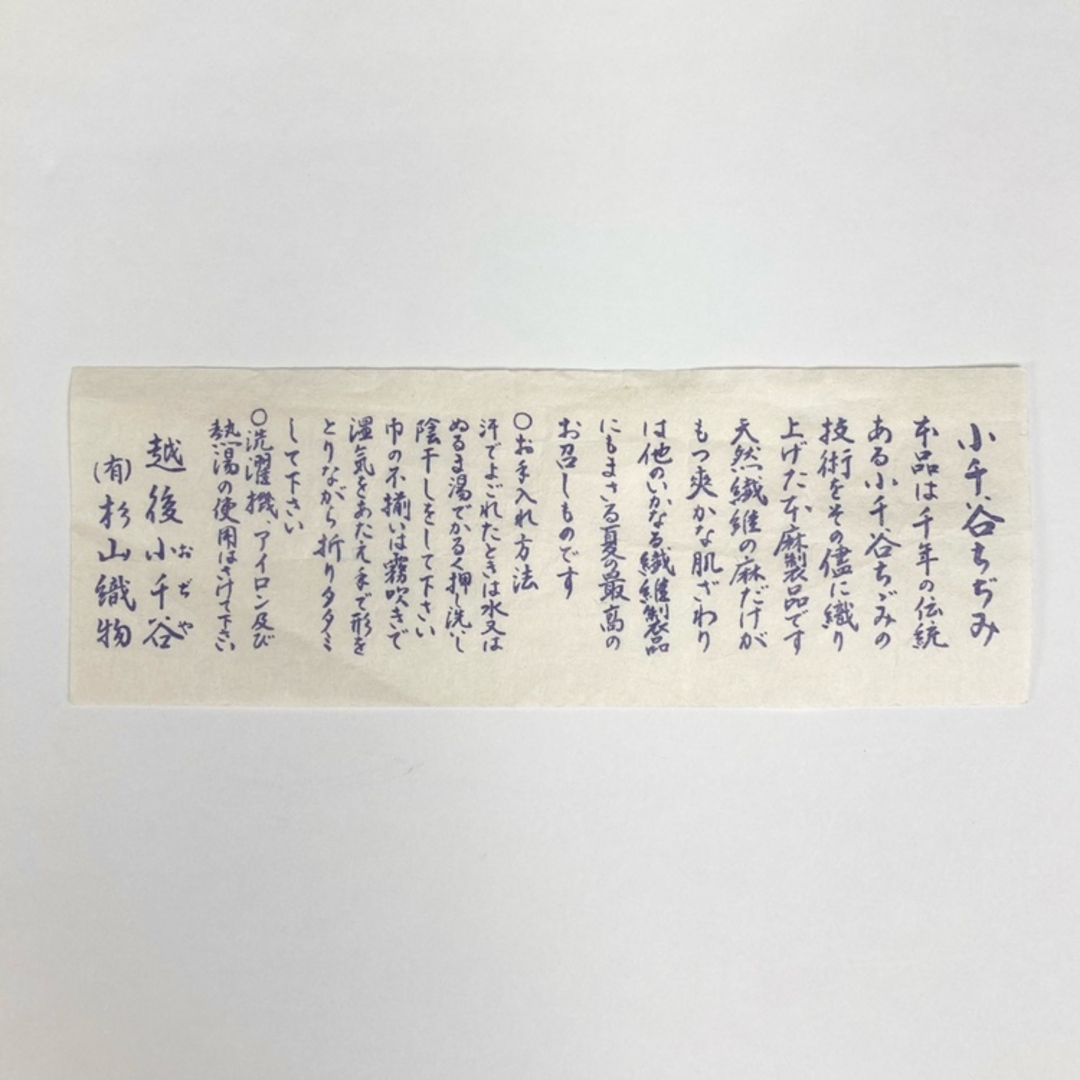 小千谷ちぢみ
本品は千年の伝統
ある小千谷ちゞみの
技術をその儘に織り
上げた本麻製品です
天然繊維の麻だけが
もつ爽かな肌ざわり
は他のいかなる繊維製品
にもまさる夏の最高の
お召しものです
○お手入れ方法
汗でよごれたときは水又は
ぬるま湯でかるく押し洗いし
陰干しをして下さい
巾の不揃いは霧吹きで
湿気をあたえ手で形を
とりながら折りタタミ
して下さい
○洗濯機、アイロン及び
熱湯の使用はさけて下さい
越後小千谷
おぢや
(有)杉山織物